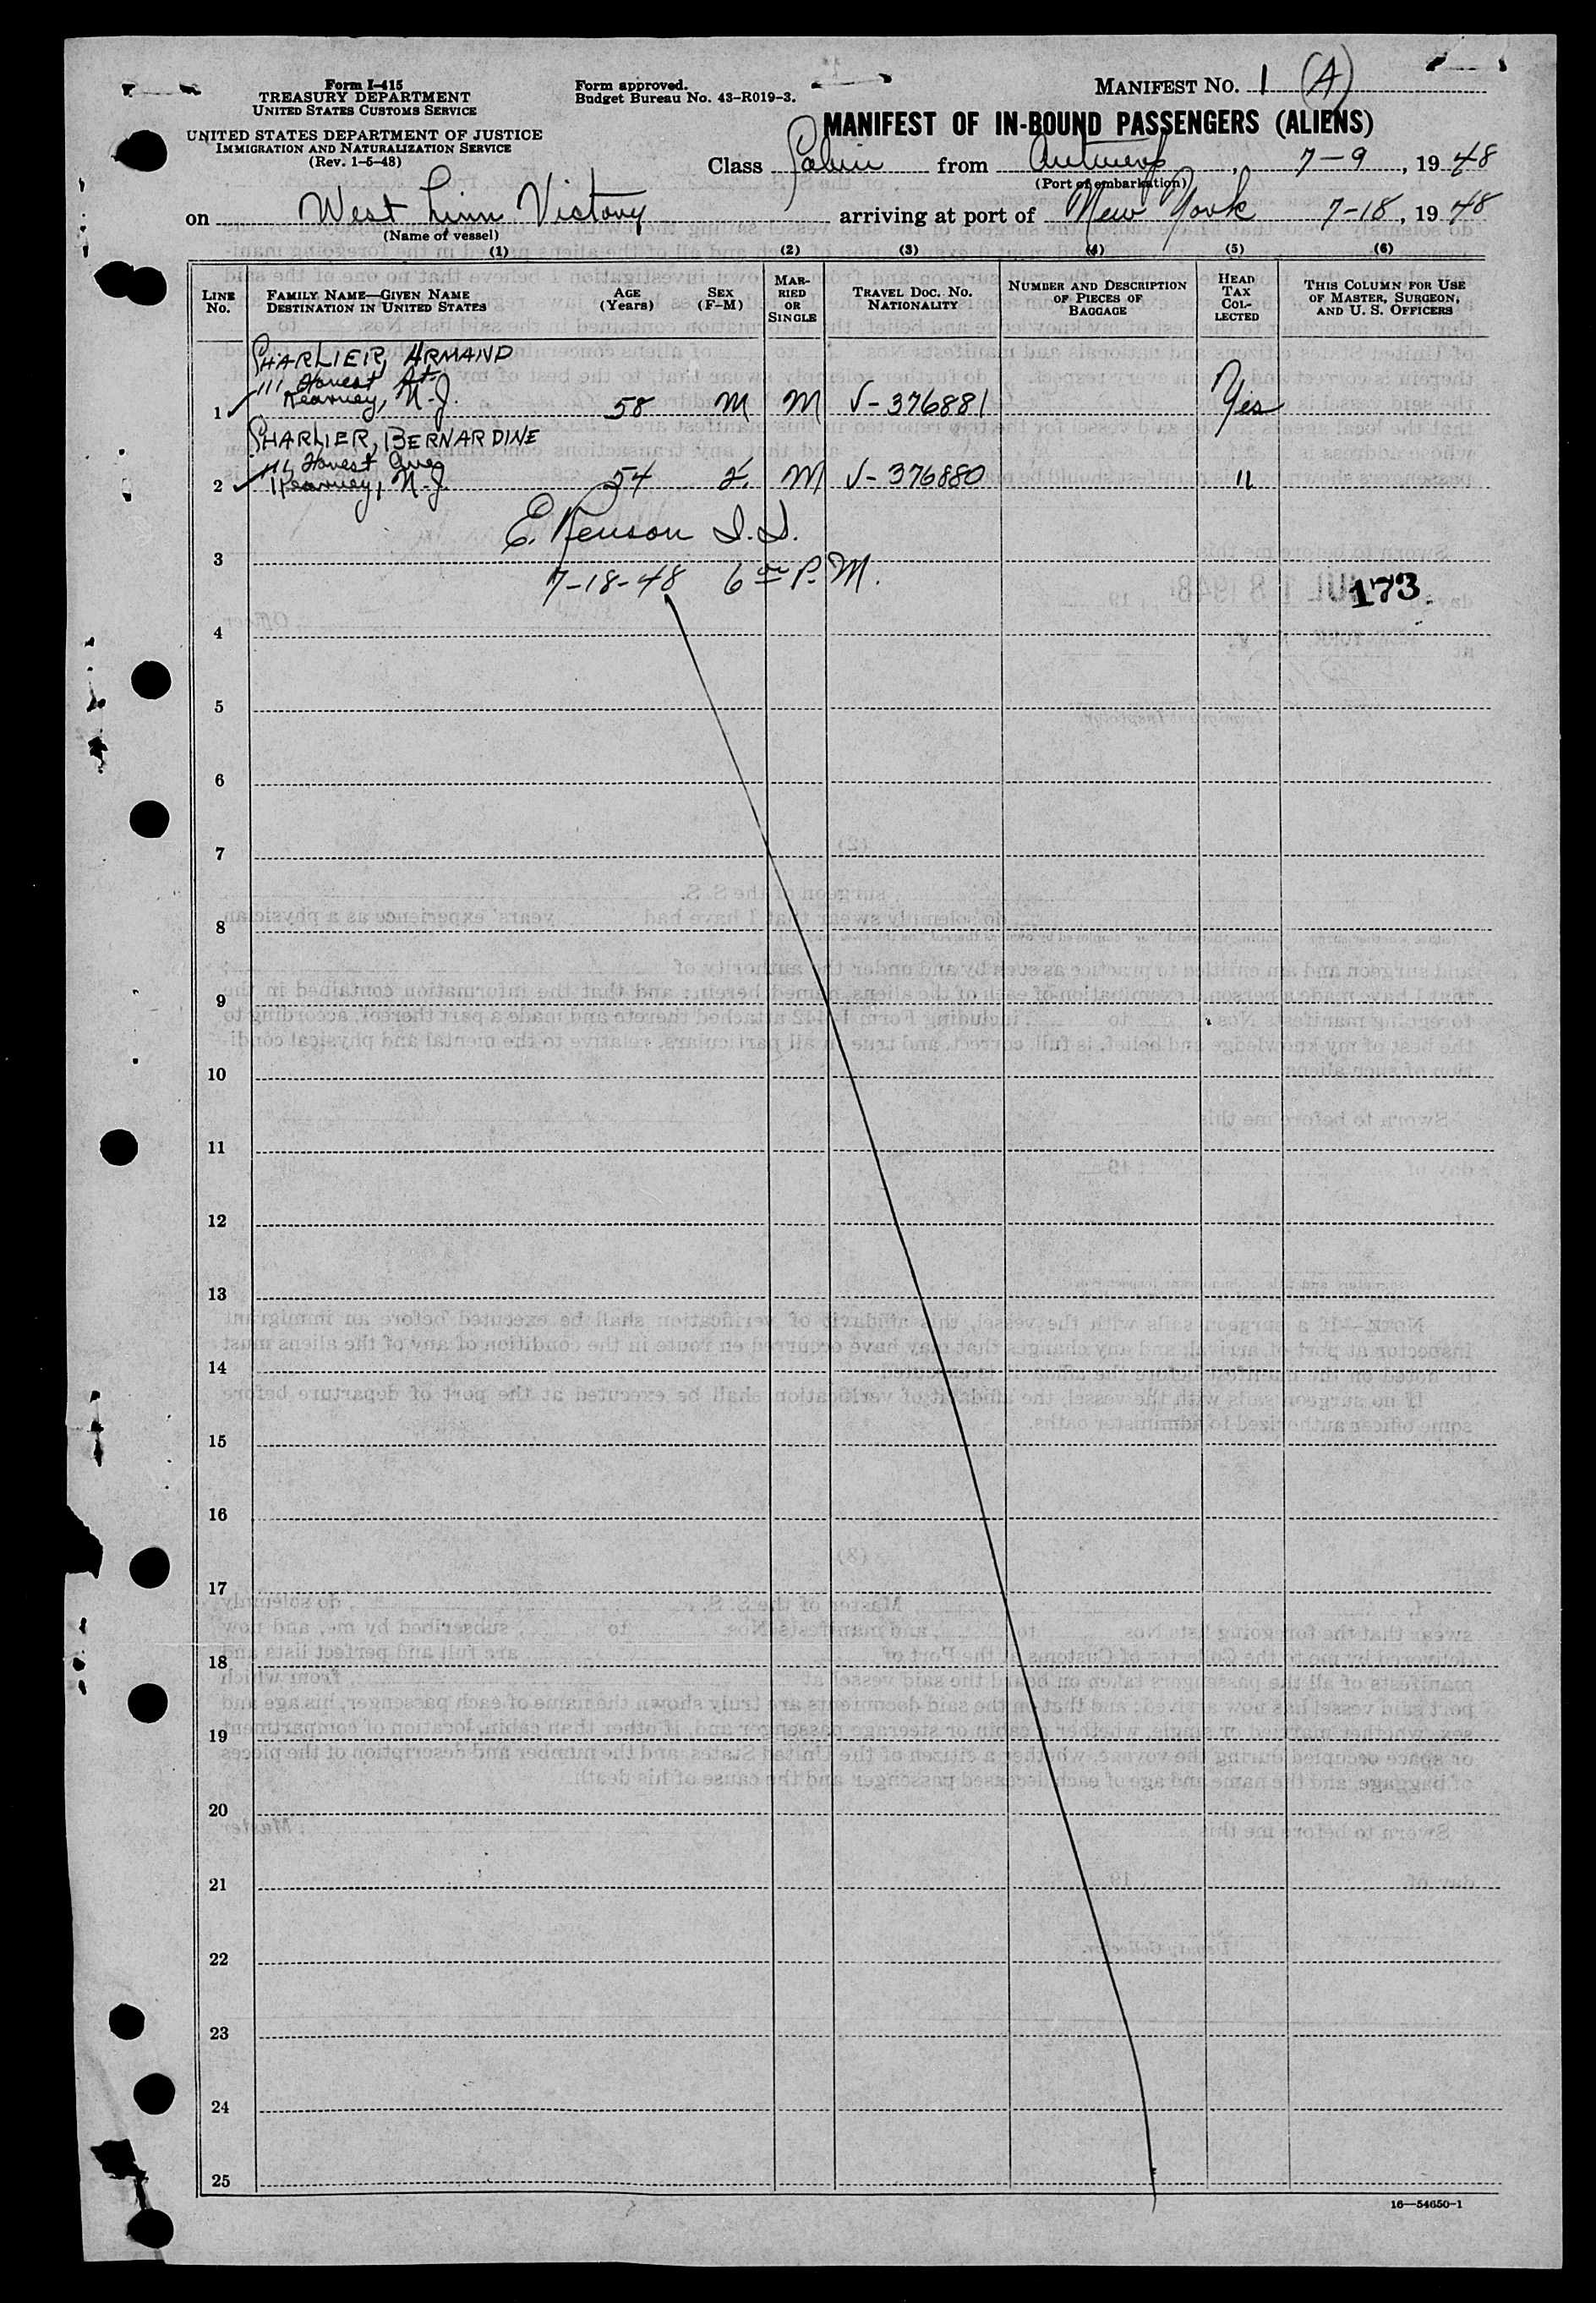 Form I-415
TREASURY DEPARTMENT
UNITED STATES CUSTOMS SERVICE
UNITED STATES DEPARTMENT OF JUSTICE
IMMIGRATION AND NATURALIZATION SERVICE
(Rev. 1-5-48)
Form approved.
Budget Bureau No. 43-R019-3.
MANIFEST NO. 1 (A)
MANIFEST OF IN-BOUND PASSENGERS (ALIENS)
Class Cabin from Antwerp, 7-9, 1948
(Port of embarkation)
on West Linn Victory arriving at port of New York 7-18, 1948
(Name of vessel)
(1) (2) (3) (4) (5) (6)
LINE NO.
FAMILY NAME—GIVEN NAME
DESTINATION IN UNITED STATES
AGE
(YEARS)
SEX
(F-M)
MARRIED OR SINGLE
TRAVEL DOC. NO.
NATIONALITY
NUMBER AND DESCRIPTION OF PIECES OF BAGGAGE
HEAD TAX COLLECTED
THIS COLUMN FOR USE OF MASTER, SURGEON, AND U. S. OFFICERS
CHARLIER, ARMAND
111 St.
1 ✓ Kearney, N.J. 58 M M V-376881 Yes
CHARLIER, BERNARDINE
111 Ave
2 ✓ Kearney, N.J. 54 F. M V-376880 "
E. I.I.
3
7-18-48 6 P.M.
173
4
5
6
7
8
9
10
11
12
13
14
15
16
17
18
19
20
21
22
23
24
25
16—54650-1